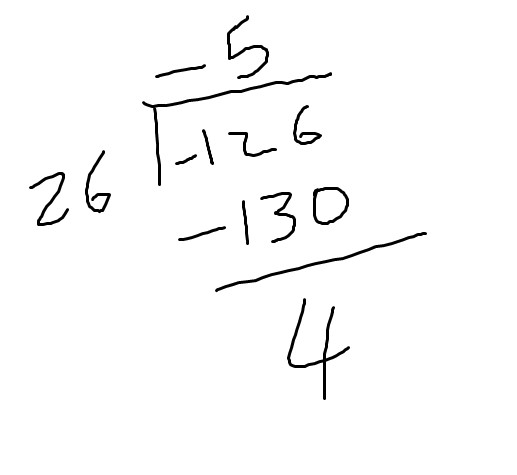 -5
26 -126
-130
4